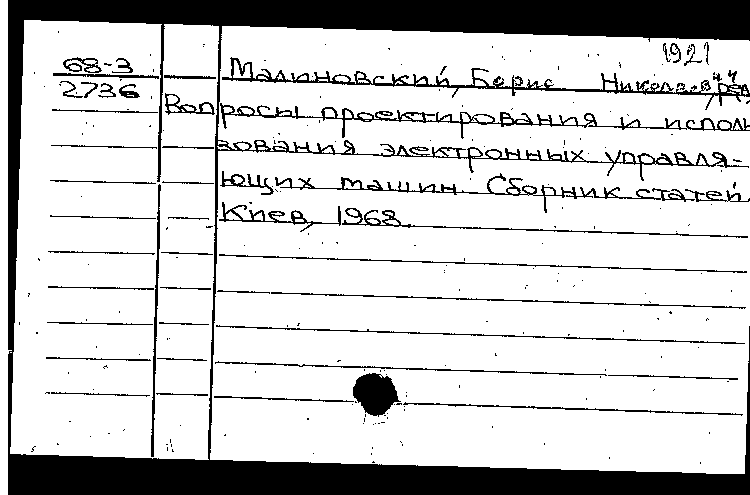 1921
68-3 Малиновский, Борис Николаевич, ред.
2736 Вопросы проектирования и исполь
зования электронных управля-
ющих машин. Сборник статей.
Киев, 1968.